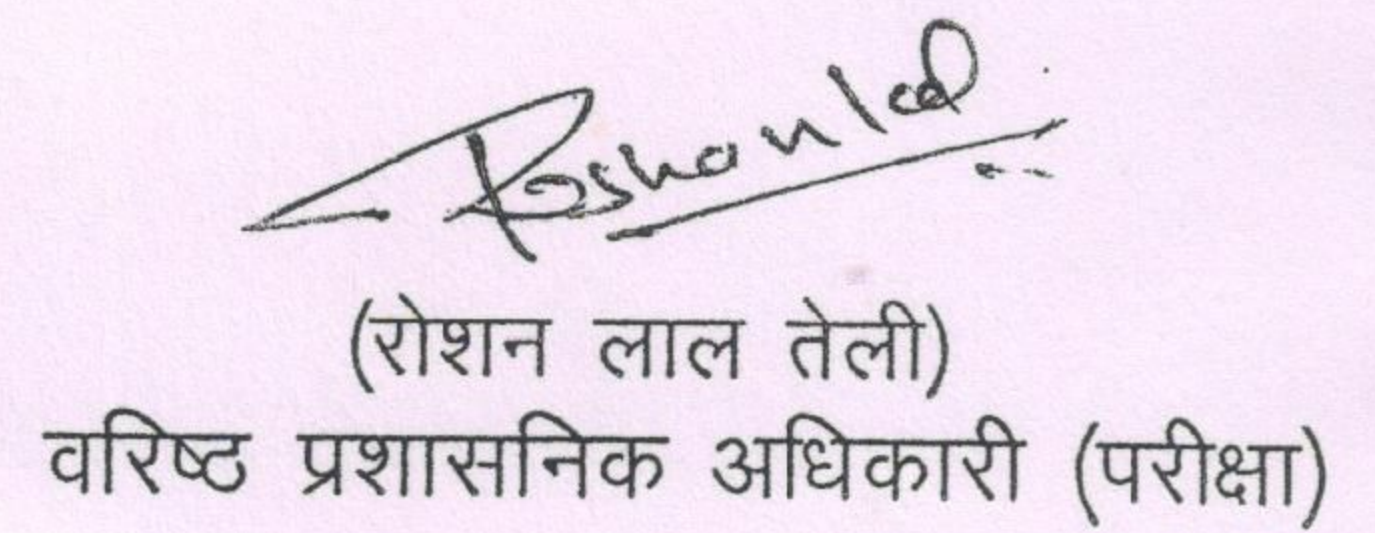 Roshanlal
(रोशन लाल तेली)
वरिष्ठ प्रशासनिक अधिकारी (परीक्षा)